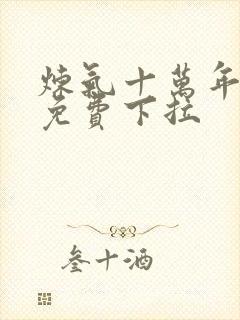 煉氣十萬年
免費下拉
叁十酒